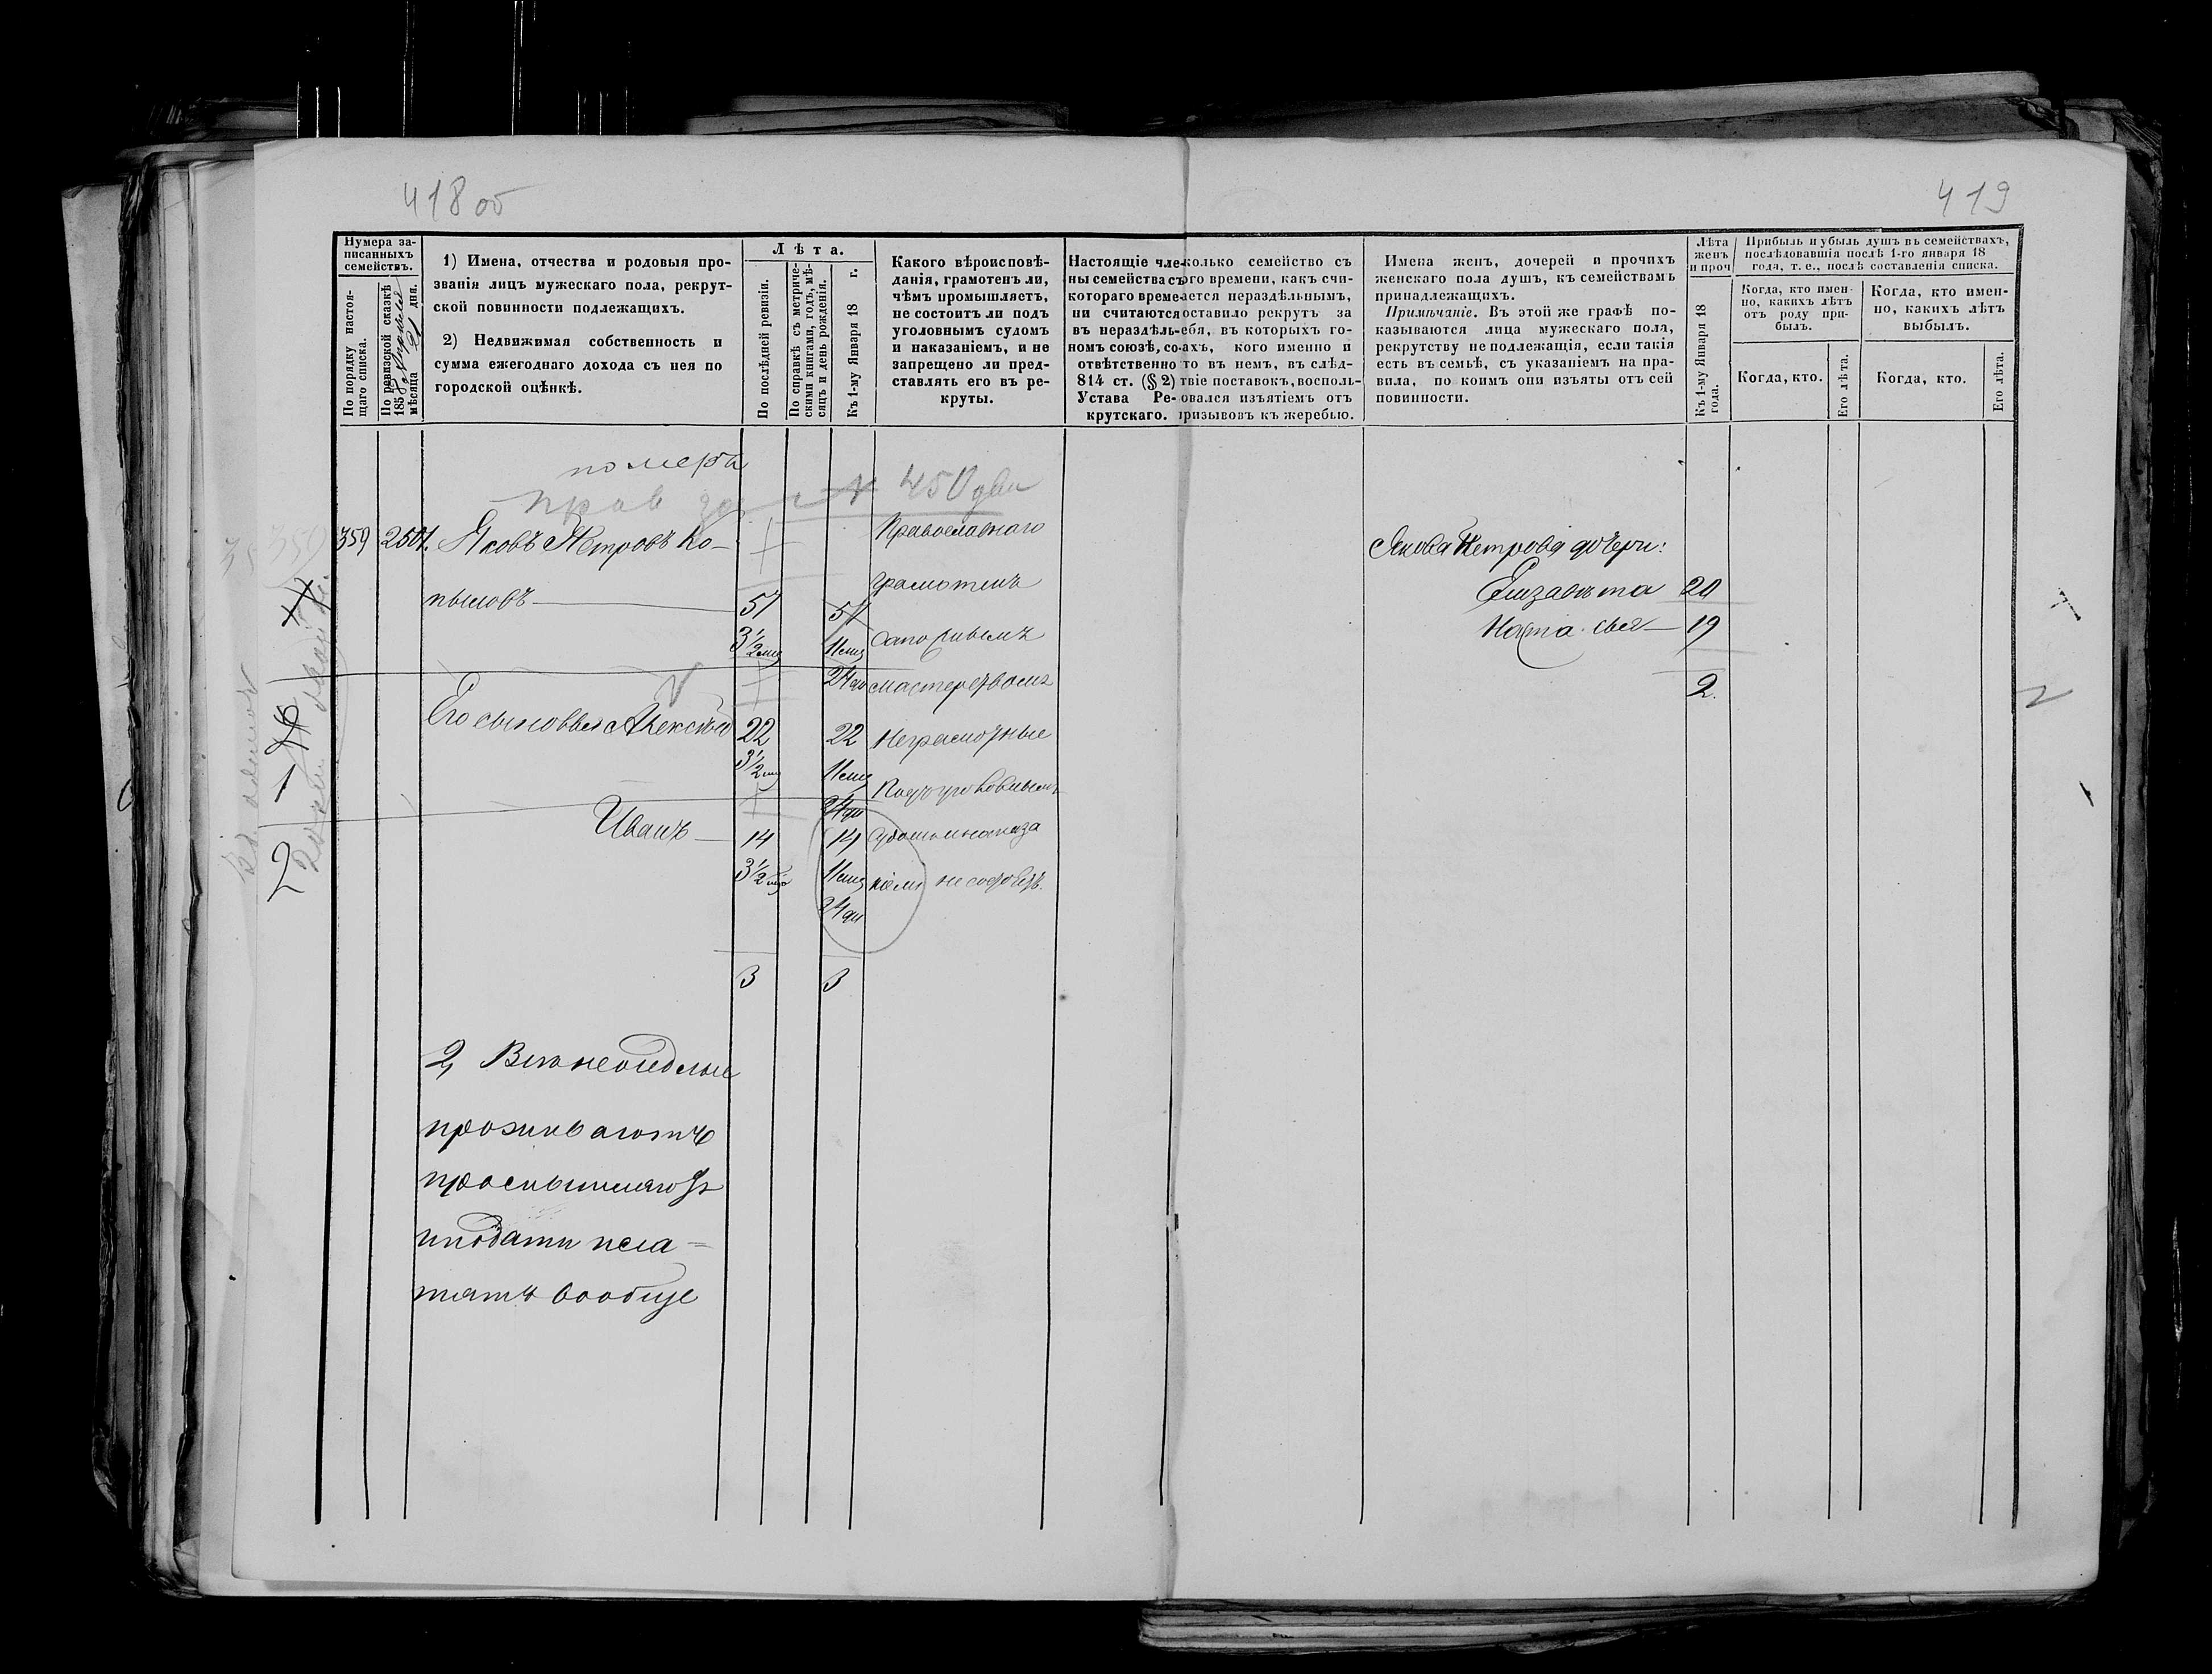 418 об
419
Нумера за-
писанныхъ
семействъ.
По порядку настоя-
щаго списка.
По ревизской сказкѣ
185 Апрѣля
мѣсяца 21 дня.
1) Имена, отчества и родовыя про-
званія лицъ мужескаго пола, рекрут-
ской повинности подлежащихъ.
2) Недвижимая собственность и
сумма ежегоднаго дохода съ нея по
городской оцѣнкѣ.
Лѣта.
По послѣдней ревизіи.
По справкѣ съ метриче-
скими книгами, годъ, мѣ-
сяцъ и день рожденія.
Къ 1-му Января 18 г.
Какого вѣроисповѣ-
данія, грамотенъ ли,
чѣмъ промышляетъ,
не состоитъ ли подъ
уголовнымъ судомъ
и наказаніемъ, и не
запрещено ли пред-
ставлять его въ ре-
круты.
Настоящіе чле-
ны семейства съ
котораго време-
ни считаются
въ нераздѣль-
номъ союзѣ, со-
отвѣтственно
814 ст. (§ 2)
Устава Ре-
крутскаго.
колько семейство съ
ого времени, какъ счи-
ается нераздѣльнымъ,
оставило рекрутъ за
ебя, въ которыхъ го-
ахъ, кого именно и
то въ немъ, въ слѣд-
твіе поставокъ, восполь-
овался изъятіемъ отъ
ризывовъ къ жеребью.
Имена женъ, дочерей и прочихъ
женскаго пола душъ, къ семействамъ
принадлежащихъ.
Примѣчаніе. Въ этой же графѣ по-
казываются лица мужескаго пола,
рекрутству не подлежащія, если такія
есть въ семьѣ, съ указаніемъ на пра-
вила, по коимъ они изъяты отъ сей
повинности.
Лѣта
женъ
и проч
Къ 1-му Января 18
года.
Прибыль и убыль душъ въ семействахъ,
послѣдовавшія послѣ 1-го января 18
года, т. е., послѣ составленія списка.
Когда, кто имен-
но, какихъ лѣтъ
отъ роду при-
былъ.
Когда, кто имен-
но, какихъ лѣтъ
выбылъ.
Когда, кто.
Его лѣта.
Когда, кто.
Его лѣта.
померъ
450
359 2501. Яковъ Петровъ Ко- Православнаго
пыловъ 51 51 грамотенъ
3½ мц 11 мц сапожнымъ
24 дн мастерствомъ
Его сыновья Алексѣй 22 22 Неграмотные
3½ мц 11 мц Подъ уголовнымъ
24 дн
Иванъ 14 14 судомъ и наказа
3½ мц 11 мц ніемъ не состоятъ.
24 дн
3 3
2, Вѣ неоседлые
проживаютъ
промышляютъ
и подати пла=
тятъ вообще
Якова Петрова дочери:
Елизавета 20
Настасья 19
2.